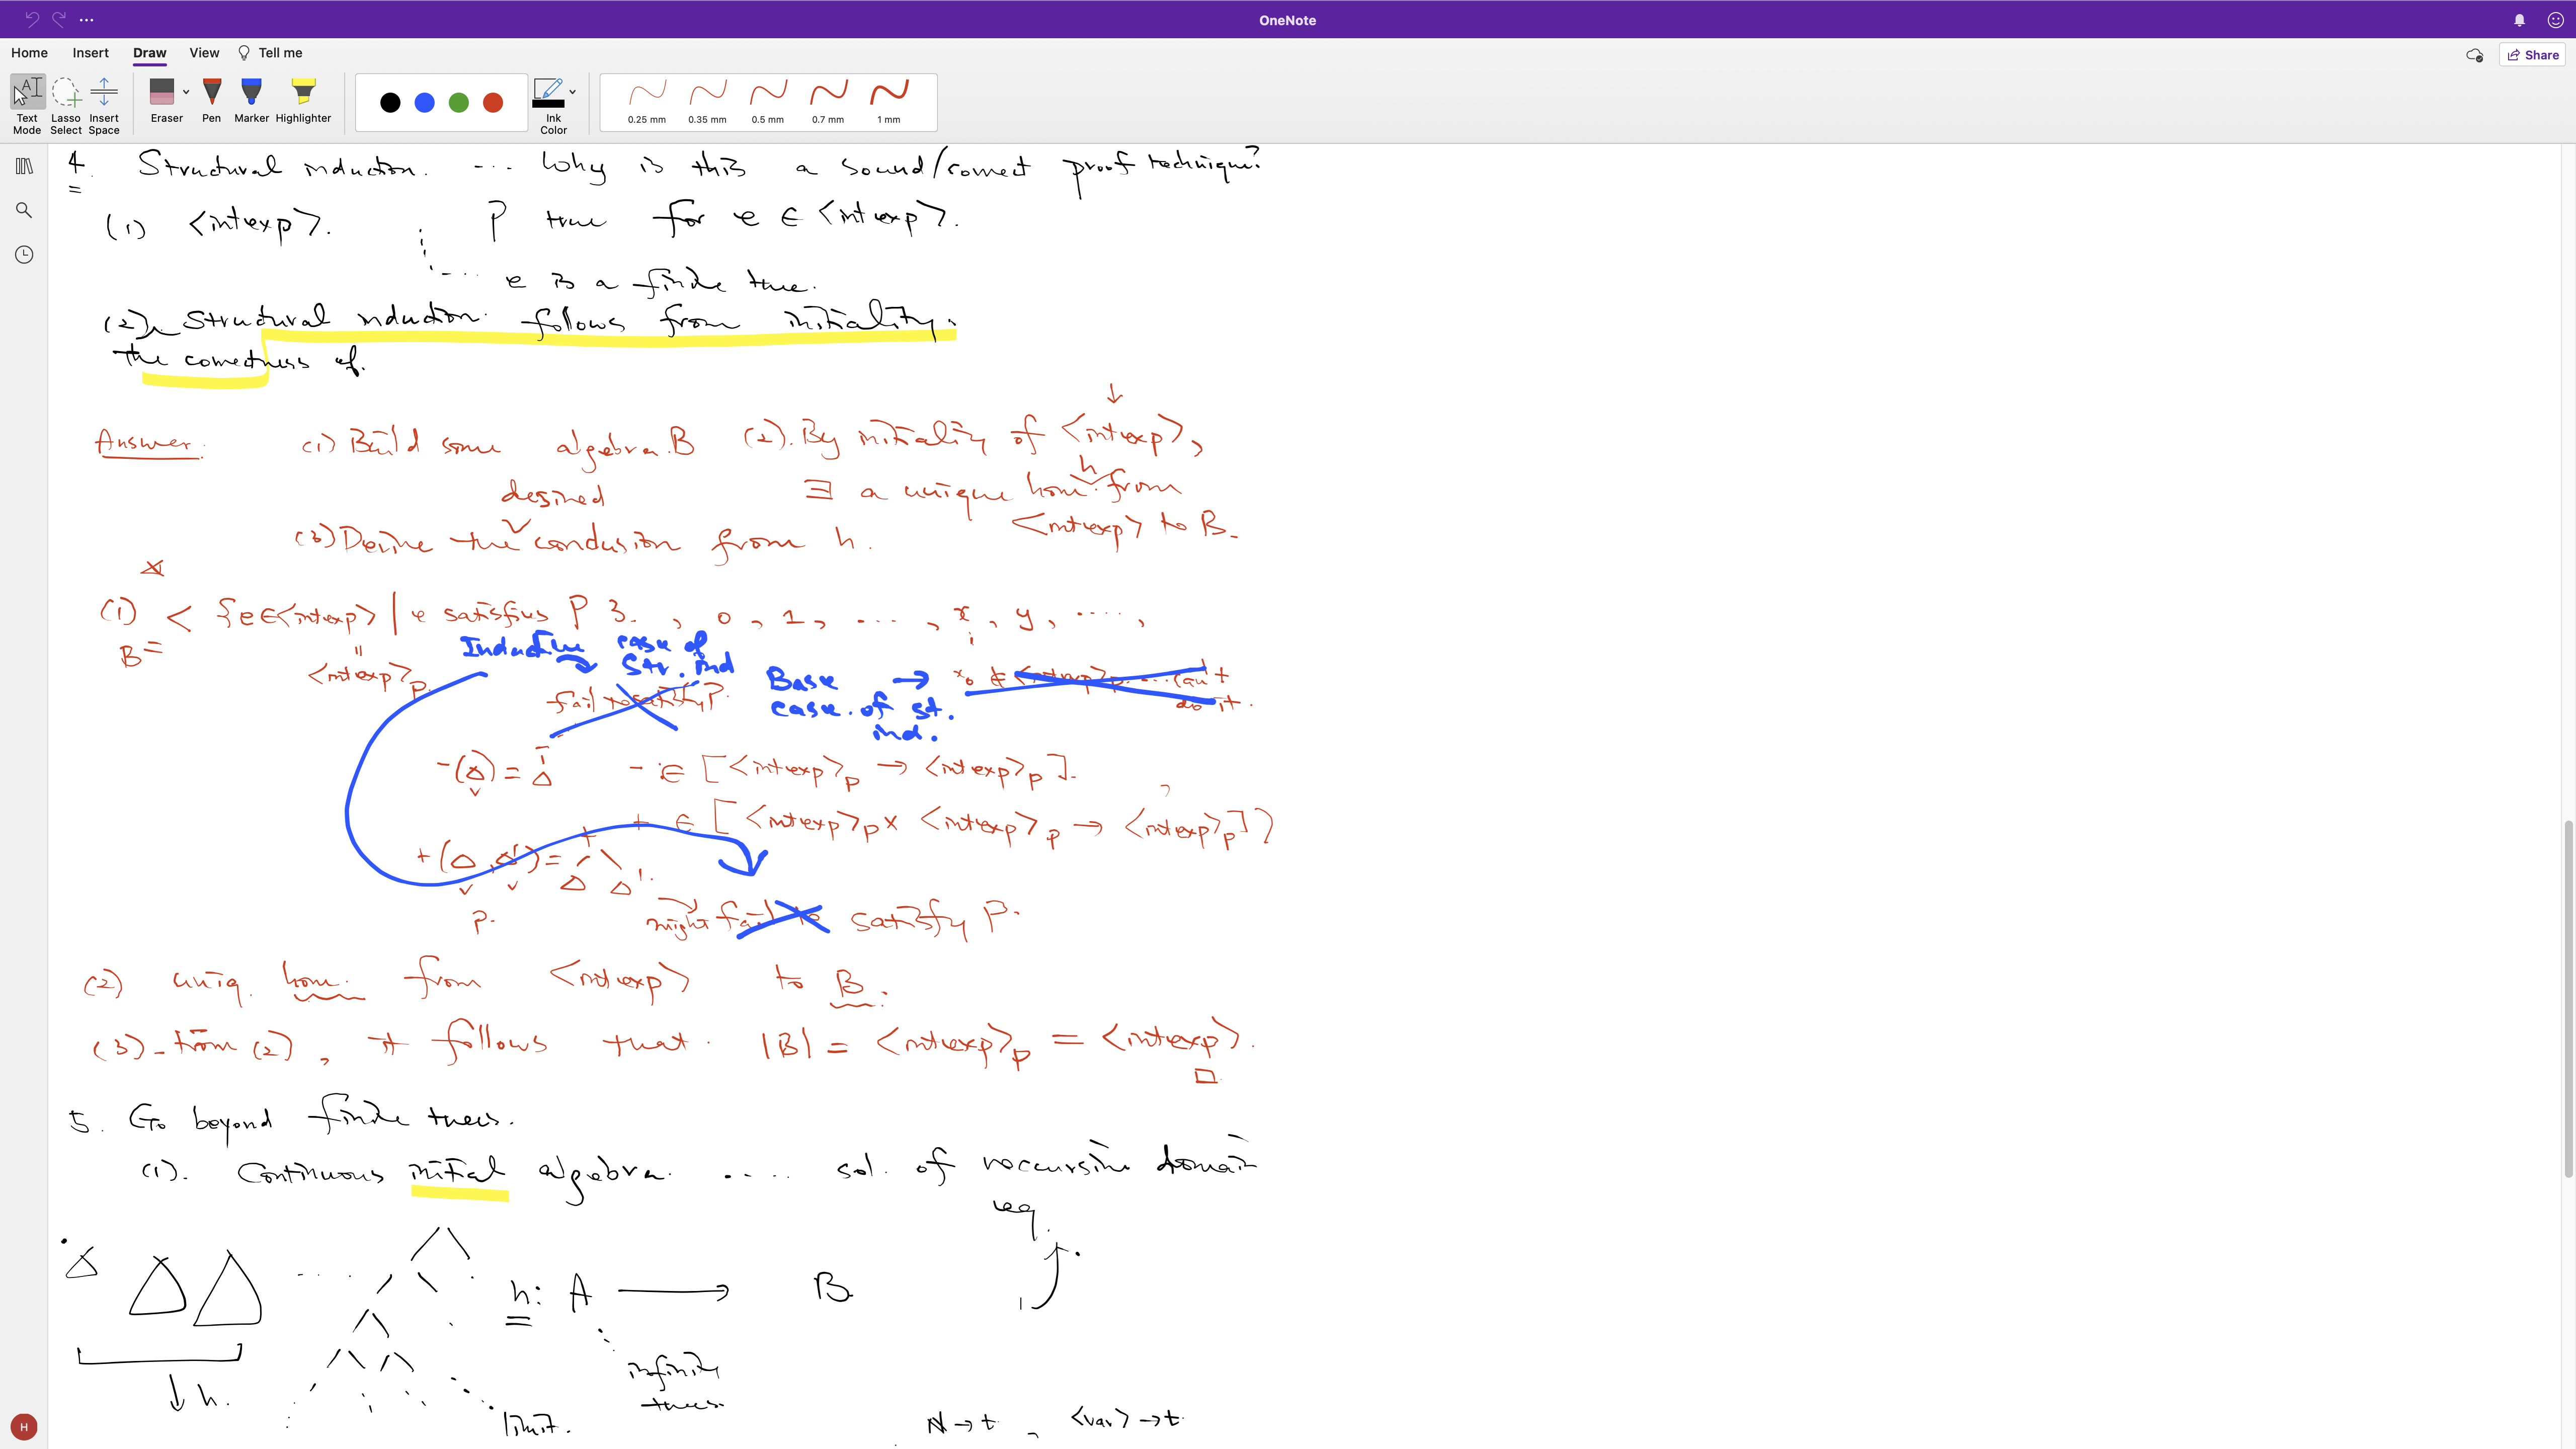 OneNote
Home Insert Draw View Tell me
Share
Text Mode
Lasso Select
Insert Space
Eraser
Pen
Marker
Highlighter
Ink Color
0.25 mm 0.35 mm 0.5 mm 0.7 mm 1 mm
4. Structural induction. ... Why is this a sound/correct proof technique?
(1) <intexp>. P true for e ∈ <intexp>.
e is a finite tree.
(2) Structural induction follows from initiality.
The correctness of.
Answer. (1) Build some algebra B (2). By initiality of <intexp>,
∃ a unique hom. h from
<intexp> to B.
desired
(3) Derive the conclusion from h.
(1) B = < {e∈<intexp> | e satisfies P }, 0, 1, ..., x, y, ....,
Inductive case of
Str. ind
<intexp>p
fail to satisfy P.
Base → x0 ∉ <intexp>p .... can't
case of st. do it.
ind.
-(Δ) = - Δ - ∈ [<intexp>p → <intexp>p].
,
+ ∈ [<intexp>p × <intexp>p → <intexp>p]>
+(Δ, Δ') = + Δ Δ'.
P.
might fail to satisfy P.
(2) uniq. hom. from <intexp> to B.
(3) From (2), it follows that |B| = <intexp>p = <intexp>.
□
5. Go beyond finite trees.
(1). Continuous initial algebra .... sol. of recursive domain
eq.
h: A → B
infinite
trees
↓ h.
limit.
N → t, <var> → t
H